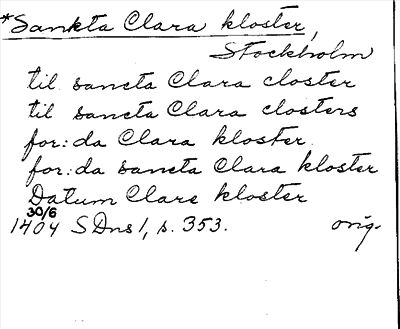 *Sankta Clara kloster,
Stockholm
til sancta Clara closter
til sancta Clara closters
for: da Clara kloster
for: da sancta Clara kloster
Datum Clare kloster
30/6
1404 SDns 1, s. 353. orig.